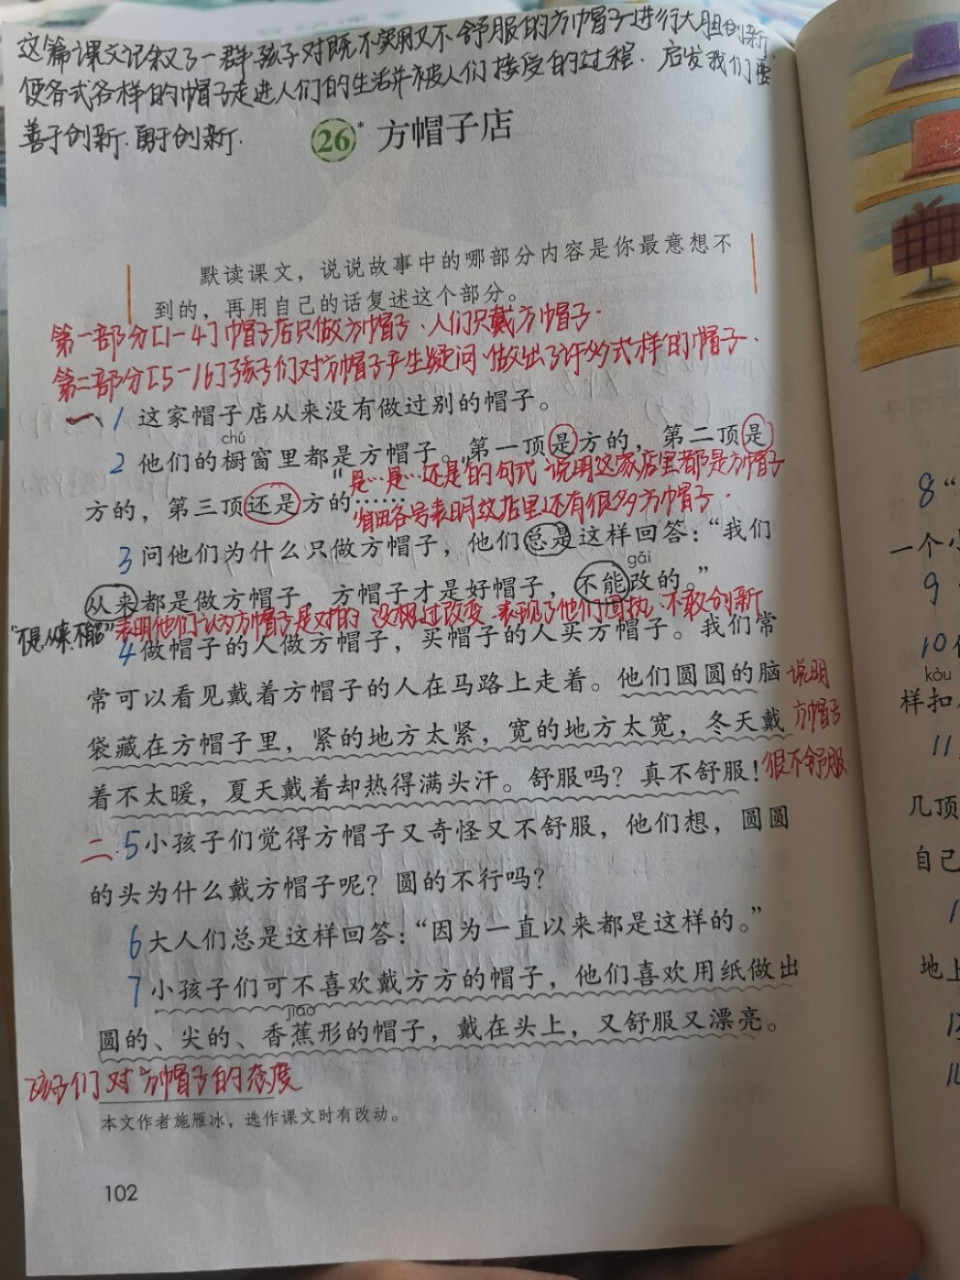 这篇课文记叙了一群孩子对既不实用又不舒服的方帽子进行大胆创新
使各式各样的帽子走进人们的生活并被人们接受的过程. 启发我们要
善于创新.勇于创新.
26* 方帽子店
默读课文，说说故事中的哪部分内容是你最意想不
到的，再用自己的话复述这个部分。
第一部分[1-4]帽子店只做方帽子.人们只戴方帽子.
第二部分[5-16]孩子们对方帽子产生疑问 做出了许多式样的帽子.
一、1 这家帽子店从来没有做过别的帽子。
chú
2 他们的橱窗里都是方帽子。第一顶是方的，第二顶是
"是…是…还是的句式 说明这家店里都是方帽子
方的，第三顶还是方的……
省略号表明故店里还有很多方帽子.
3 问他们为什么只做方帽子，他们总是这样回答：“我们
gǎi
从来都是做方帽子，方帽子才是好帽子，不能改的。”
表明他们认为方帽子是对的 没想过改变.表现了他们固执.不敢创新
4 做帽子的人做方帽子，买帽子的人买方帽子。我们常
常可以看见戴着方帽子的人在马路上走着。他们圆圆的脑
说明
袋藏在方帽子里，紧的地方太紧，宽的地方太宽，冬天戴
方帽子
着不太暖，夏天戴着却热得满头汗。舒服吗？真不舒服！
很不舒服
二.5 小孩子们觉得方帽子又奇怪又不舒服，他们想，圆圆
的头为什么戴方帽子呢？圆的不行吗？
6 大人们总是这样回答：“因为一直以来都是这样的。”
7 小孩子们可不喜欢戴方方的帽子，他们喜欢用纸做出
jiāo
圆的、尖的、香蕉形的帽子，戴在头上，又舒服又漂亮。
孩子们对方帽子的态度
本文作者施雁冰，选作课文时有改动。
102
8 “
一个小
9
10
kòu
样扣
11
几顶
自己
地上